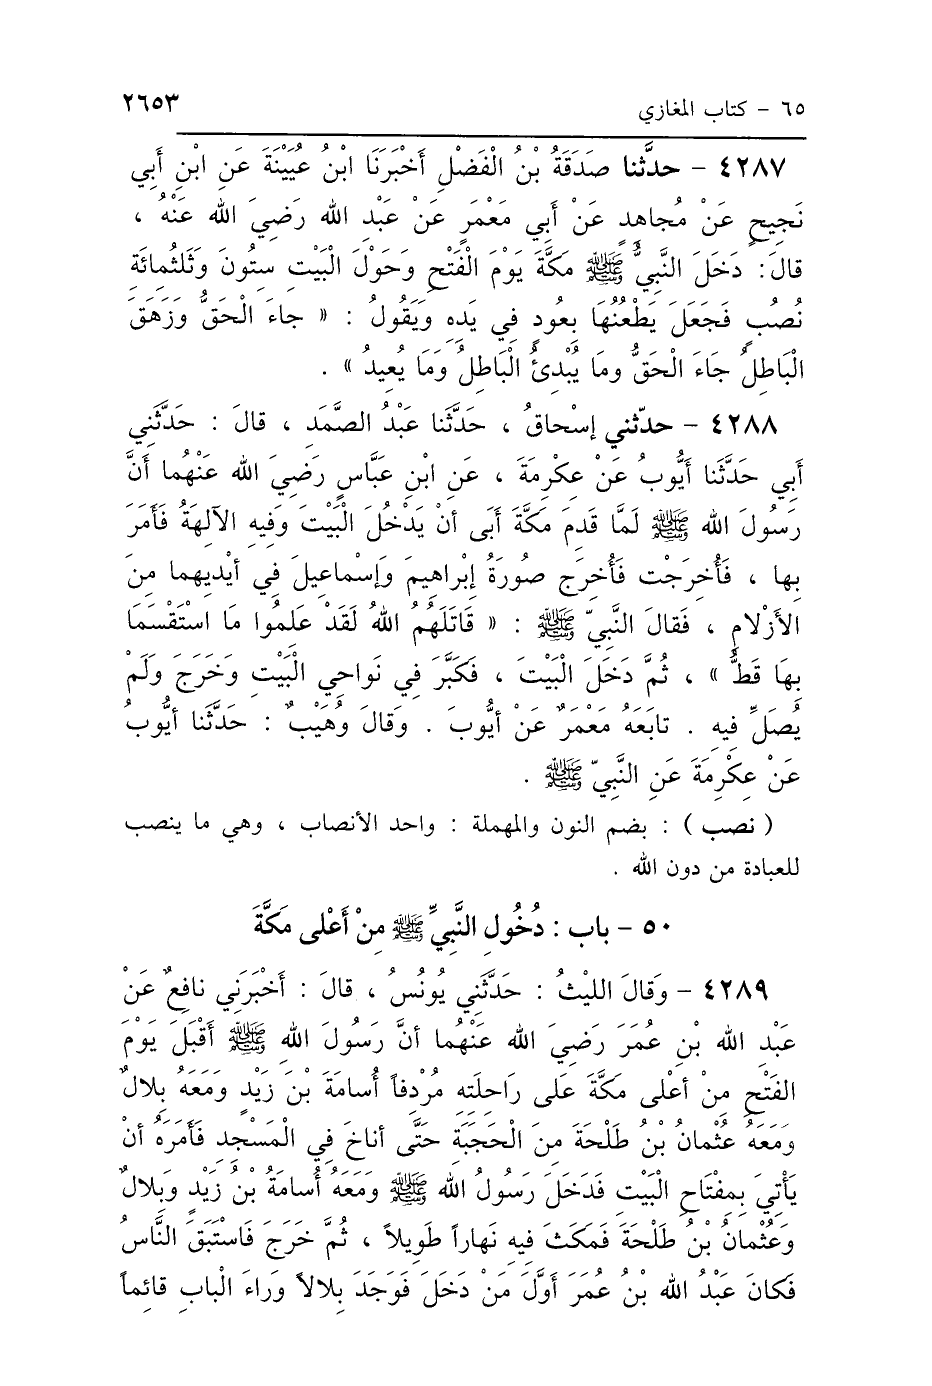 ٦٥ - كتاب المغازي ٢٦٥٣
٤٢٨٧ - حدَّثنا صَدَقَةُ بْنُ الْفَضْلِ أَخْبَرَنَا ابْنُ عُيَيْنَةَ عَنِ ابْنِ أَبي
نَجِيحٍ عَنْ مُجاهِدٍ عَنْ أَبي مَعْمَرٍ عَنْ عَبْدِ الله رَضِيَ الله عَنْهُ ،
قالَ: دَخَلَ النَّبيُّ ﷺ مَكَّةَ يَوْمَ الْفَتْحِ وَحَوْلَ الْبَيْتِ سِتُّونَ وَثَلثُمائَةِ
نُصُبٍ فَجَعَلَ يَطْعُنُهَا بِعُودٍ فِي يَدِهِ وَيَقُولُ : « جاءَ الْحَقُّ وَزَهَقَ
الْبَاطِلُ جَاءَ الْحَقُّ ومَا يُبْدِئُ الْبَاطِلُ وَمَا يُعِيدُ » .
٤٢٨٨ - حدّثني إِسْحاقُ ، حَدَّثَنا عَبْدُ الصَّمَدِ ، قالَ : حَدَّثَنِي
أَبي حَدَّثَنا أَيُّوبُ عَنْ عِكْرِمَةَ ، عَنِ ابْنِ عَبَّاسٍ رَضِيَ الله عَنْهُما أَنَّ
رَسُولَ الله ﷺ لَمَّا قَدِمَ مَكَّةَ أَبَى أَنْ يَدْخُلَ الْبَيْتَ وَفِيهِ الآلِهَةُ فَأَمَرَ
بِها ، فَأُخرِجَتْ فَأُخرِجَ صُورَةُ إبْراهِيمَ وَإسْماعِيلَ فِي أيْدِيهما مِنَ
الأَزْلَامِ ، فَقالَ النَّبيّ ﷺ : « قَاتَلَهُمُ اللهُ لَقَدْ عَلِمُوا مَا اسْتَقْسَمَا
بِهَا قَطُّ » ، ثُمَّ دَخَلَ الْبَيْتَ ، فَكَبَّرَ فِي نَواحِي الْبَيْتِ وَخَرَجَ وَلَمْ
يُصَلِّ فِيهِ . تابَعَهُ مَعْمَرٌ عَنْ أيُّوبَ . وَقالَ وُهَيْبٌ : حَدَّثَنا أيُّوبُ
عَنْ عِكْرِمَةَ عَنِ النَّبيّ ﷺ .
( نصب ) : بضم النون والمهملة : واحد الأنصاب ، وهي ما ينصب
للعبادة من دون الله .
٥٠ - باب : دُخُولِ النَّبيِّ ﷺ مِنْ أَعْلى مَكَّةَ
٤٢٨٩ - وَقالَ الليْثُ : حَدَّثَنِي يُونُسُ ، قالَ : أَخْبَرَنِي نافِعٌ عَنْ
عَبْدِ الله بْنِ عُمَرَ رَضِيَ الله عَنْهُما أنَّ رَسُولَ اللهِ ﷺ أقْبَلَ يَوْمَ
الفَتْحِ مِنْ أعْلى مَكَّةَ عَلى رَاحِلَتِهِ مُرْدِفاً أُسامَةَ بْنَ زَيْدٍ ومَعَهُ بِلالٌ
ومَعَهُ عُثْمانُ بْنُ طَلْحَةَ مِنَ الْحَجَبَةِ حَتَّى أناخَ فِي الْمَسْجِدِ فَأَمَرَهُ أنْ
يَأْتِيَ بِمِفْتَاحِ الْبَيْتِ فَدَخَلَ رَسُولُ الله ﷺ ومَعَهُ أُسامَةُ بْنُ زَيْدٍ وبِلالٌ
وَعُثْمانُ بْنُ طَلْحَةَ فَمكَثَ فِيهِ نَهاراً طَوِيلاً ، ثُمَّ خَرَجَ فَاسْتَبَقَ النَّاسُ
فَكانَ عَبْدُ الله بْنُ عُمَرَ أوَّلَ مَنْ دَخَلَ فَوَجَدَ بِلالاً وَراءَ الْبابِ قائِماً